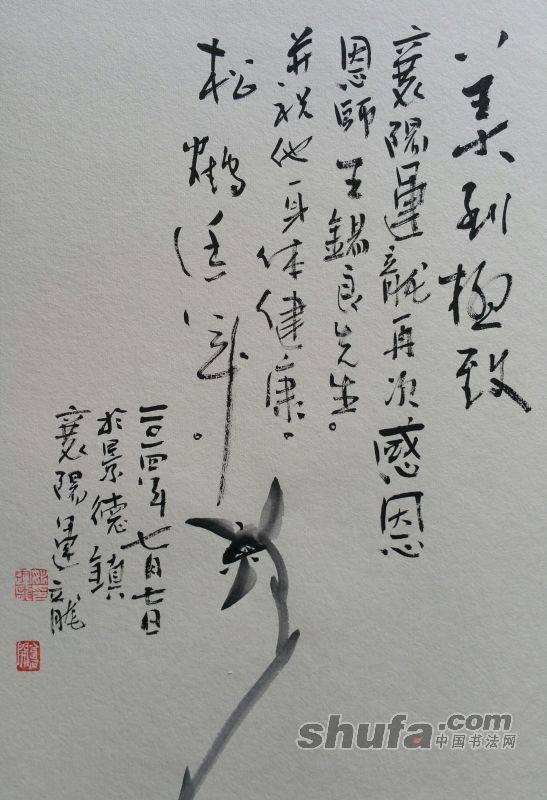 美到極致
襄陽運龍再次感恩
恩師王錫良先生。
并祝他身体健康。
松鶴
二〇一四年七月七日
於景德鎮
襄陽運龍
shufa.com
中国书法网